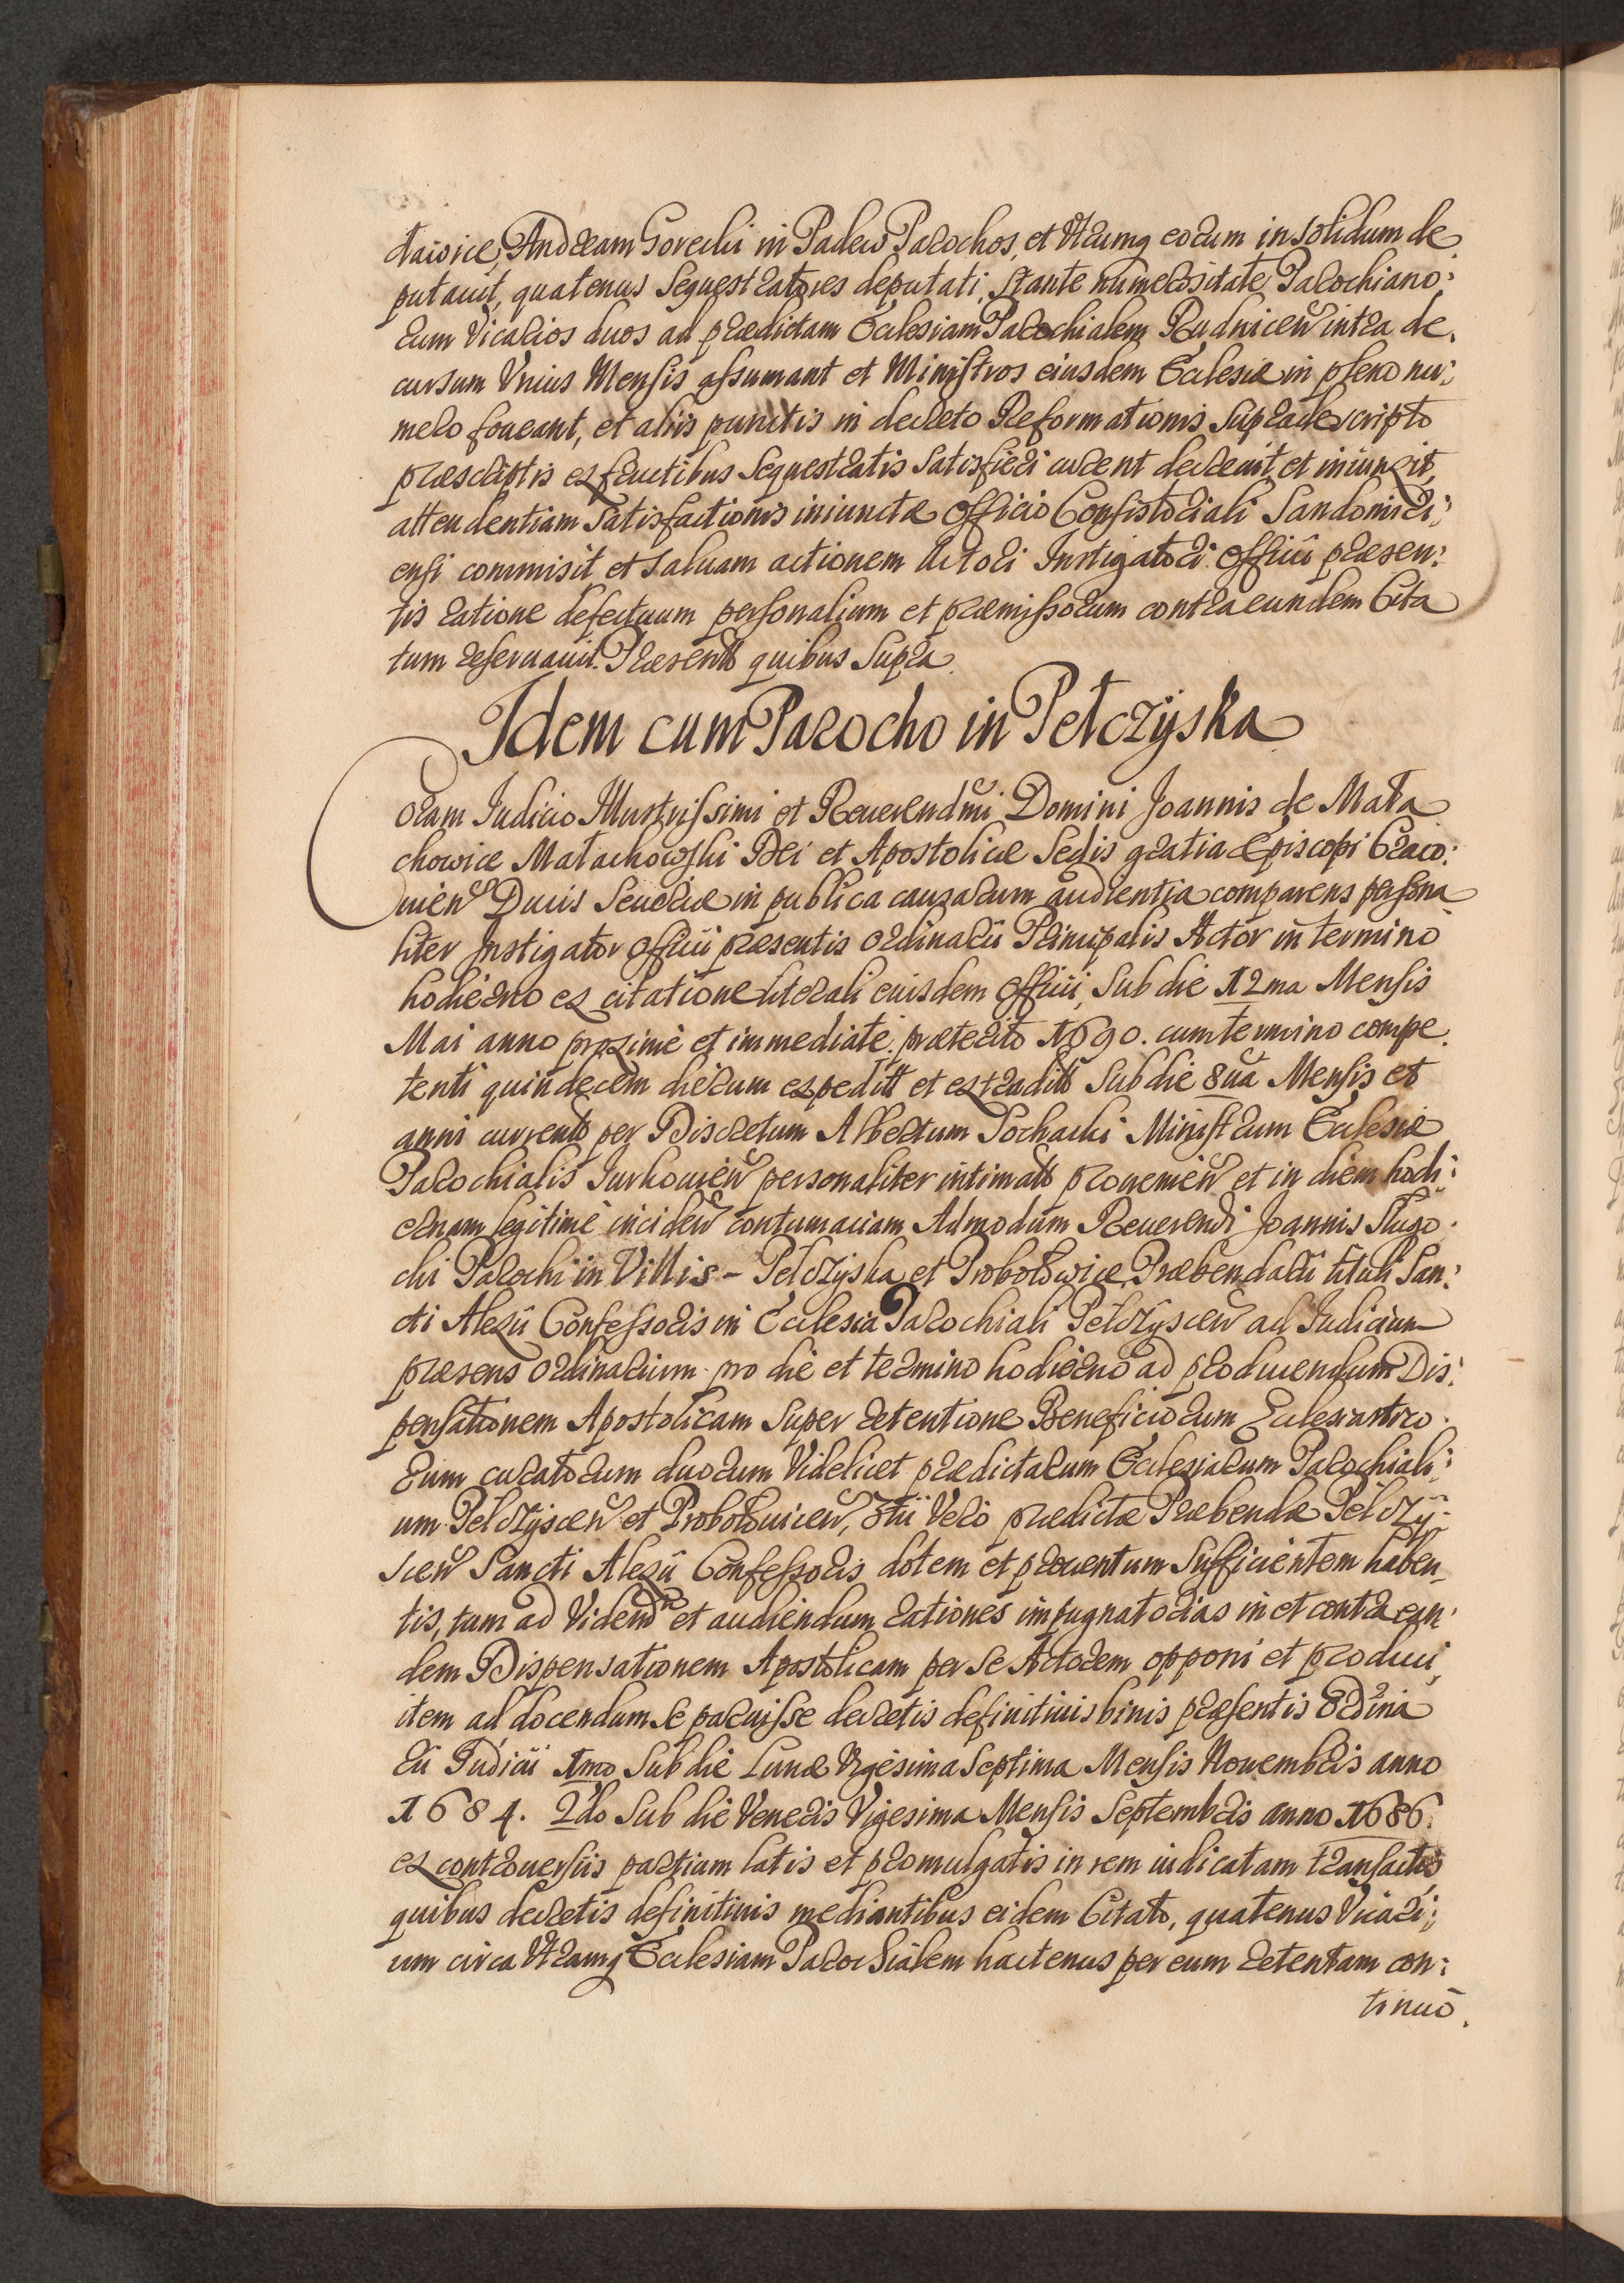 dawice, Andream Gorecki in Padew Parochos, et Utrumq eorum in solidum de
putauit, quatenus Sequestratores deputati, Stante numerositate Parochiano:
rum Vicarios duos ad praedictam Ecclesiam Parochialem Rudnicen intra de.
cursum Unius Mensis assumant et Ministros eiusdem Ecclesiae in pleno nu:
mero foueant, et aliis punctis in decreto Reformationis Supradescripto
praescriptis ex fructibus Sequestratis Satisfieri curent decreuit, et iniunxit,
attendentiam Satisfactionis iniunctae Officio Consistoriali Sandomiri:
ensi commisit et Saluam actionem Actori Instigatori Officii praesen:
tis ratione defectuum personalium et praemissorum contra eundem Cita
tum reseruauit. Praesentt quibus Supra.
Idem cum Parocho in Pełczyska
Coram Judicio Illustrissimi et Reuerendmi Domini Joannis de Mała
chowice Małachowski Dei et Apostolicae Sedis gratia Episcopi Craco:
uien Ducis Seueriae in publica causarum audientia comparens persona
liter Instigator Officii praesentis ordinarii Principalis Actor in termino
hodierno ex citatione literali eiusdem Officii, Sub die 12ma Mensis
Mai anno proxime et immediate praeterito 1690. cum termino compe.
tenti quindecim dierum expeditt et extraditt Sub die 8ua Mensis et
anni currentt per Discretum Albertum Sochacki Ministrum Ecclesiae
Parochialis Jurkouien personaliter intimatt prouenien et in diem hodi:
ernam legitime inciden contumaciam Admodum Reuerendi Joannis Sługo.
cki Parochi in Villis - Pełczyska et Probołowice, Praebendarii tituli San:
cti Alexii Confessoris in Ecclesia Parochiali Pełczyscen ad Judicium
praesens ordinarium pro die et termino hodierno ad producendum Dis:
pensationem Apostolicam Super retentione Beneficiorum Ecclesiastico.
rum curatorum duorum Videlicet praedictarum Ecclesiarum Parochiali:
um Pełczyscen et Probołouicen, 3tii Vero praedictae Praebendae Pełczy-
scen Sancti Alexii Confessoris dotem et prouentum Sufficientem haben,
tis, tum ad Videndm et audiendum rationes impugnatorias in et contra ean.
dem Dispensationem Apostolicam per Se Actorem opponi et produci,
item ad docendum Se paruisse decretis definitiuis binis praesentis Ordina
rii Judicii 1mo Sub die Lunae Vigesima Septima Mensis Nouembris anno
1684. 2do Sub die Veneris Vigesima Mensis Septembris anno 1686.
ex controuersiis partium latis et promulgatis in rem iudicatam transactis,
quibus decretis definitiuis mediantibus eidem Citato, quatenus Vicari:
um circa Utramq Ecclesiam Parochialem hactenus per eum retentam con:
tinuo.